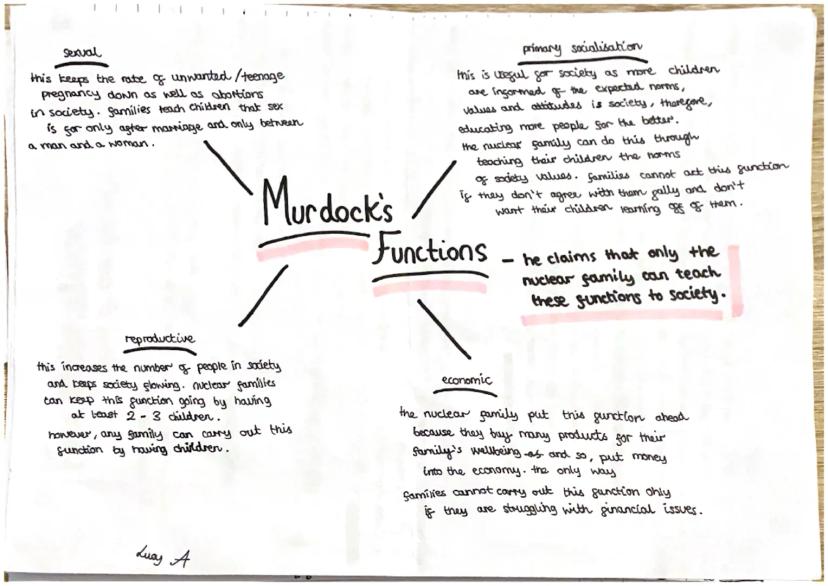 sexual
this keeps the rate of unwanted/teenage
pregnancy down as well as abortions
in society. families teach children that sex
is for only after marriage and only between
a man and a woman.
primary socialisation
this is useful for society as more children
are informed of the expected norms,
values and attitudes is society, therefore,
educating more people for the better.
the nuclear family can do this through
teaching their children the norms
of society values. families cannot act this function
if they don't agree with them fully and don't
want their children learning off of them.
Murdock's
Functions
- he claims that only the
nuclear family can teach
these functions to society.
reproductive
this increases the number of people in society
and keeps society flowing. nuclear families
can keep this function going by having
at least 2 - 3 children.
however, any family can carry out this
function by having children.
economic
the nuclear family put this function ahead
because they buy many products for their
family's wellbeing and so, put money
into the economy. the only way
families cannot carry out this function only
if they are struggling with financial issues.
Lucy A